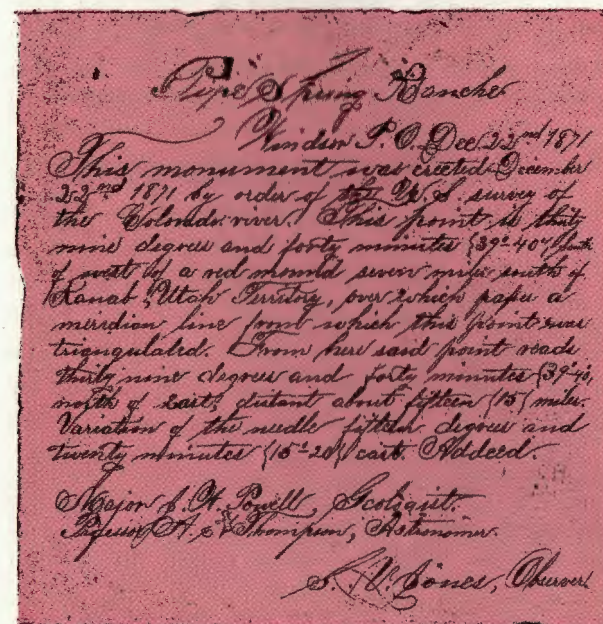 Pipe Spring Ranche
Windsor P. O. Dec 22nd 1871
This monument was erected December
22nd 1871 by order of the U S. survey of
the Colorado river. This point is thirty
nine degrees and forty minutes {39°-40'} South
of west of a red mound seven miles south of
Kanab, Utah Territory, over which passes a
meridian line from which this point was
triangulated. From here said point reads
thirty nine degrees and forty minutes {39°-40'}
north of east, distant about fifteen {15} miles.
Variation of the needle fifteen degrees and
twenty minutes {15°-20'} east.
Major J. W. Powell, Geologist.
Professor A. H. Thompson, Astronomer.
S. V. Jones, Observer